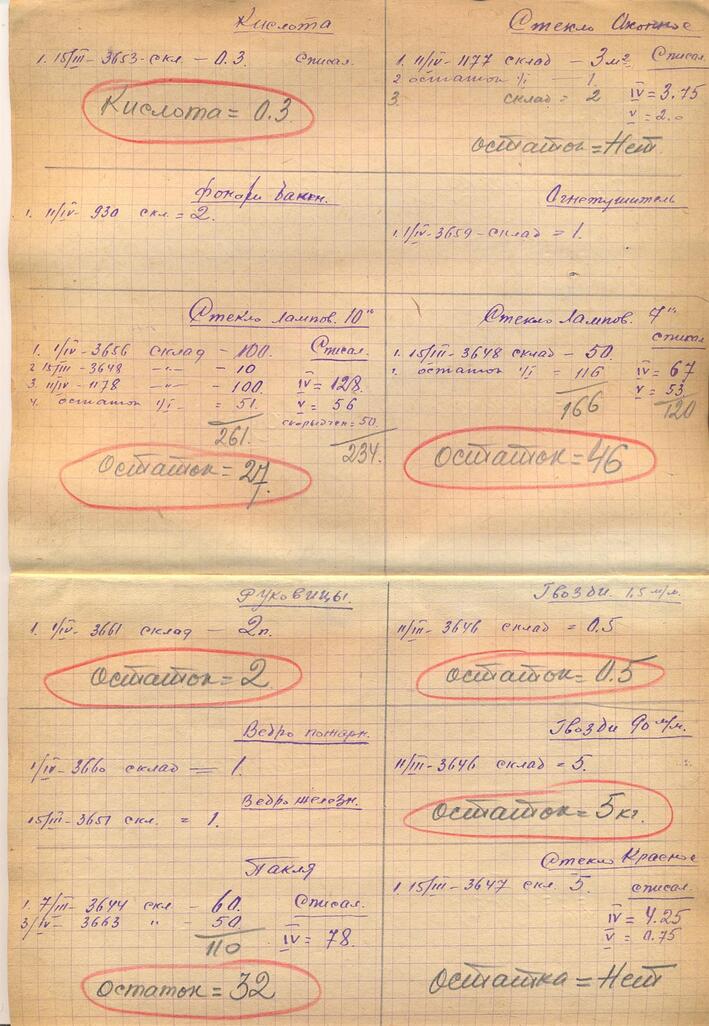 Кислота
1. 15/III - 3653 - скл. - 0.3. Списал.
Кислота = 0.3.
Стекло Оконное
1. 11/IV - 1177 склад - 3 м². Списал.
2. остаток 1/I — 1.
3. склад = 2 IV = 3.75
V = 2.0
остаток = Нет.
фонари
1. 11/IV - 930 скл. = 2.
Огнетушитель
1. 1/IV - 3659 - склад = 1.
Стекло лампов. 10'''
1. 1/IV - 3656 склад - 100. Списал.
2. 15/III - 3648 -"- - 10
3. 11/IV - 1178 -"- - 100. IV = 128.
4. остаток 1/I - = 51. V = 56
= 50.
261. 234.
Остаток = 27.
Стекло лампов. 7'''
списал
1. 15/III - 3648 склад - 50.
остаток 1/I = 116 IV = 67
V = 53.
166 120
остаток = 46
Руковицы.
1. 1/IV - 3661 склад - 2 п.
остаток = 2.
Гвозди. 1,5 м/м.
11/III - 3646 склад = 0.5
остаток = 0.5
Ведро пожарн.
1/IV - 3660 склад = 1.
Ведро железн.
15/III - 3651 скл. = 1.
Гвозди 90 м/м.
11/III - 3646 склад = 5.
остаток = 5 кг.
Пакля
1. 7/III - 3644 скл - 60. Списал.
3/IV - 3663 " - 50.
110 IV = 78.
остаток = 32
Стекло Красное
1. 15/III - 3647 скл. 5. списал.
IV = 4.25
V = 0.75
остатка = Нет